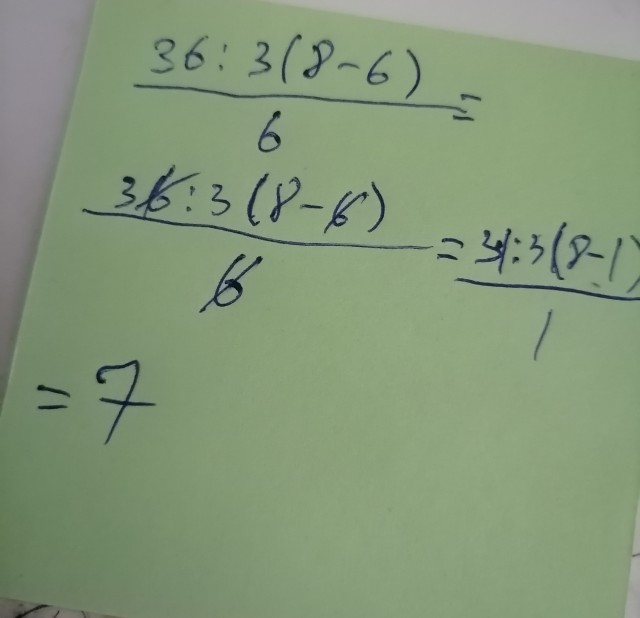 36:3(8-6)/6=
36:3(8-6)/6=31:3(8-1)/1
=7